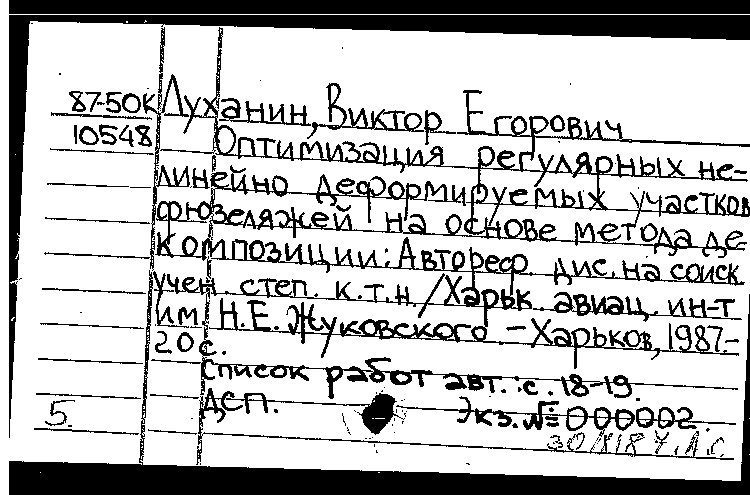 87-50К Луханин, Виктор Егорович
10548 Оптимизация регулярных не-
линейно деформируемых участков
фюзеляжей на основе метода де
композиции: Автореф. дис. на соиск.
учен. степ. к.т.н./Харьк. авиац. ин-т
им. Н.Е. Жуковского - Харьков, 1987.-
20 с.
Список работ авт.: с. 18-19.
ДСП. Экз. № 000002.
5.